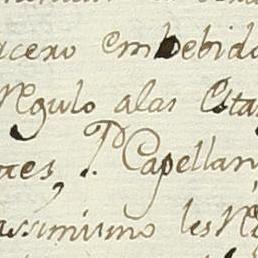 acero embebido
Regulo alas Esta
aes, P. Capellan
assimismo les Re